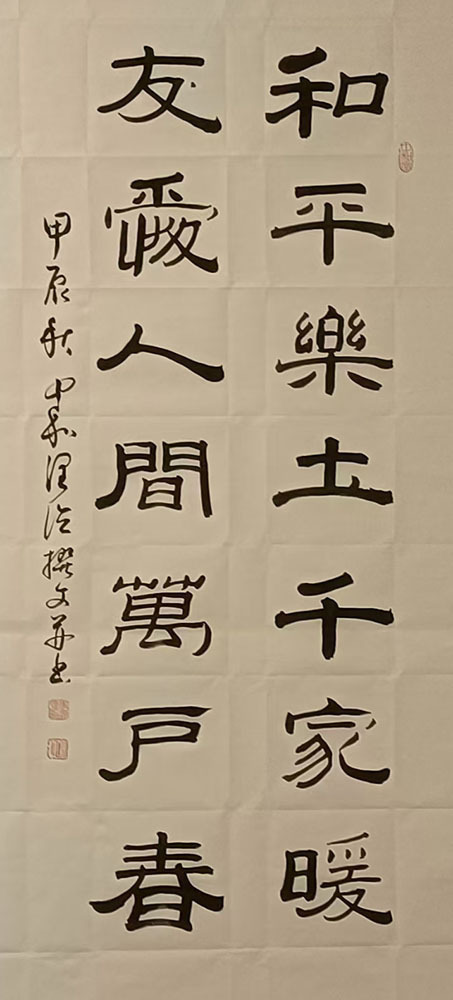 和平樂土千家暖
友愛人間萬戶春
甲辰秋 撰文并書